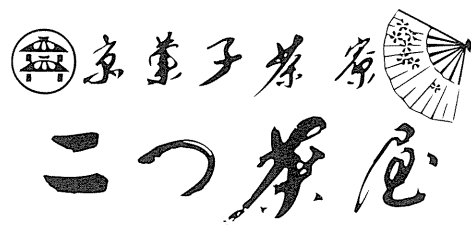 京菓子茶寮
二つ茶屋